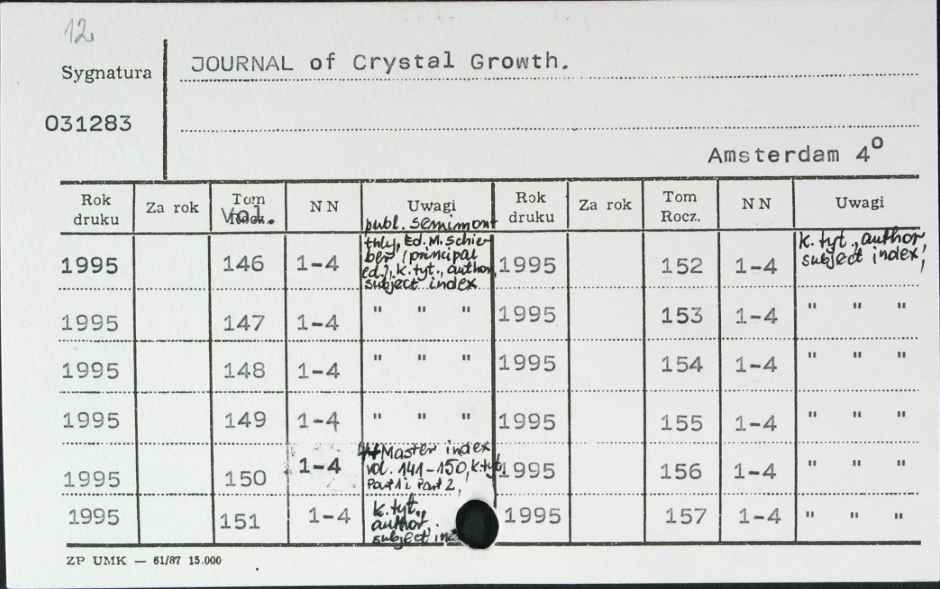 12
Sygnatura
JOURNAL of Crystal Growth.
031283
Amsterdam 4°
Rok druku Za rok Tom Vol. NN Uwagi Rok druku Za rok Tom Rocz. NN Uwagi
1995 146 1-4 publ. semimonthly, Ed. M. Schieber (principal ed.), k. tyt., author, subject index 1995 152 1-4 k. tyt., author, subject index,
1995 147 1-4 " " " 1995 153 1-4 " " "
1995 148 1-4 " " " 1995 154 1-4 " " "
1995 149 1-4 " " " 1995 155 1-4 " " "
1995 150 1-4 Master index vol. 141-150, k. tyt, Part 1 i Part 2, 1995 156 1-4 " " "
1995 151 1-4 k. tyt., author, subject 1995 157 1-4 " " "
ZP UMK — 61/87 15.000